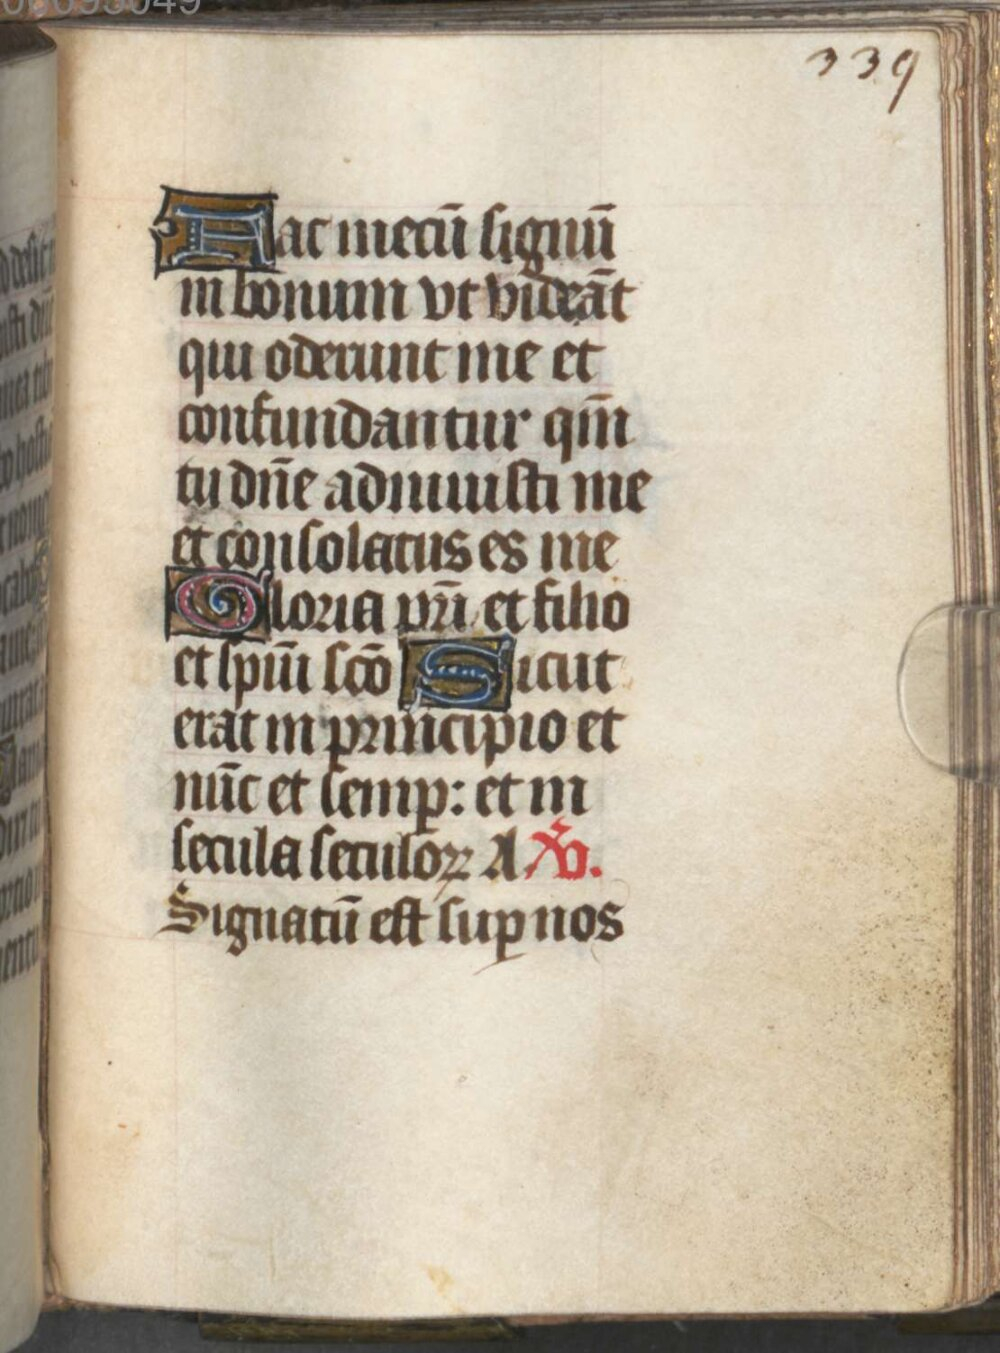 339
Fac mecū signū
in bonum vt videāt
qui oderunt me et
confundantur qm̄
tu dn̄e adiuuisti me
et consolatus es me
Gloria pr̄i et filio
et spūi scō Sicut
erat in principio et
nūc et semꝑ: et in
secula seculoꝝ A X̄v.
Signatū est suꝑ nos